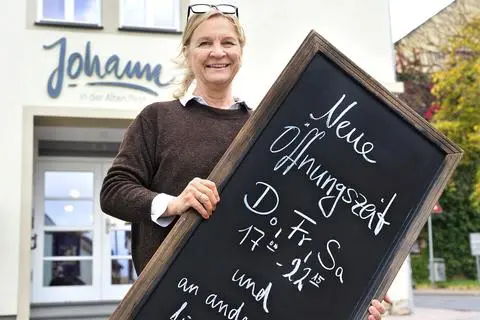 Johann
in der Alten Post
Neue
Öffnungszeit
Do, Fr, Sa
17⁰⁰-22¹⁵
und
an ander